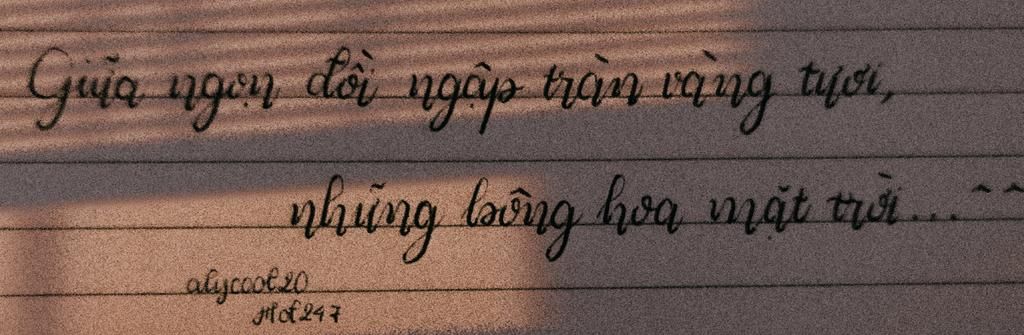 Giữa ngọn đồi ngập tràn vàng tươi,
những bông hoa mặt trời... ^^
alycool20